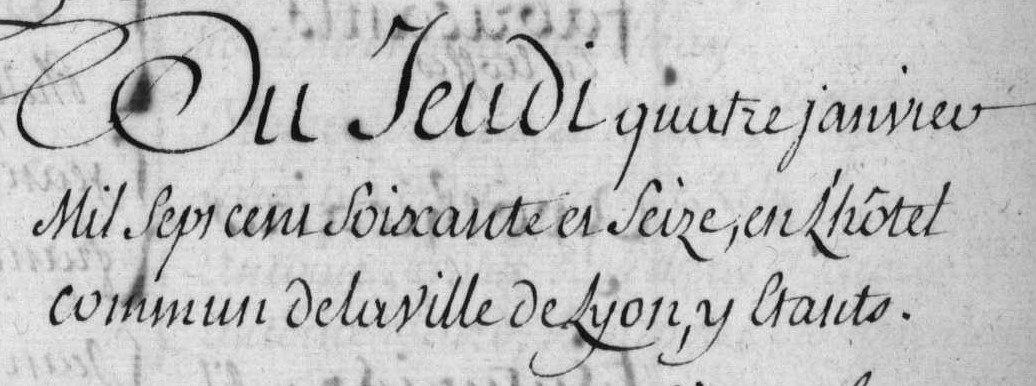 Du Jeudi quatre janvier
Mil Sept cent Soixante et Seize, en L'hôtel
commun de la ville de Lyon, y Etants.